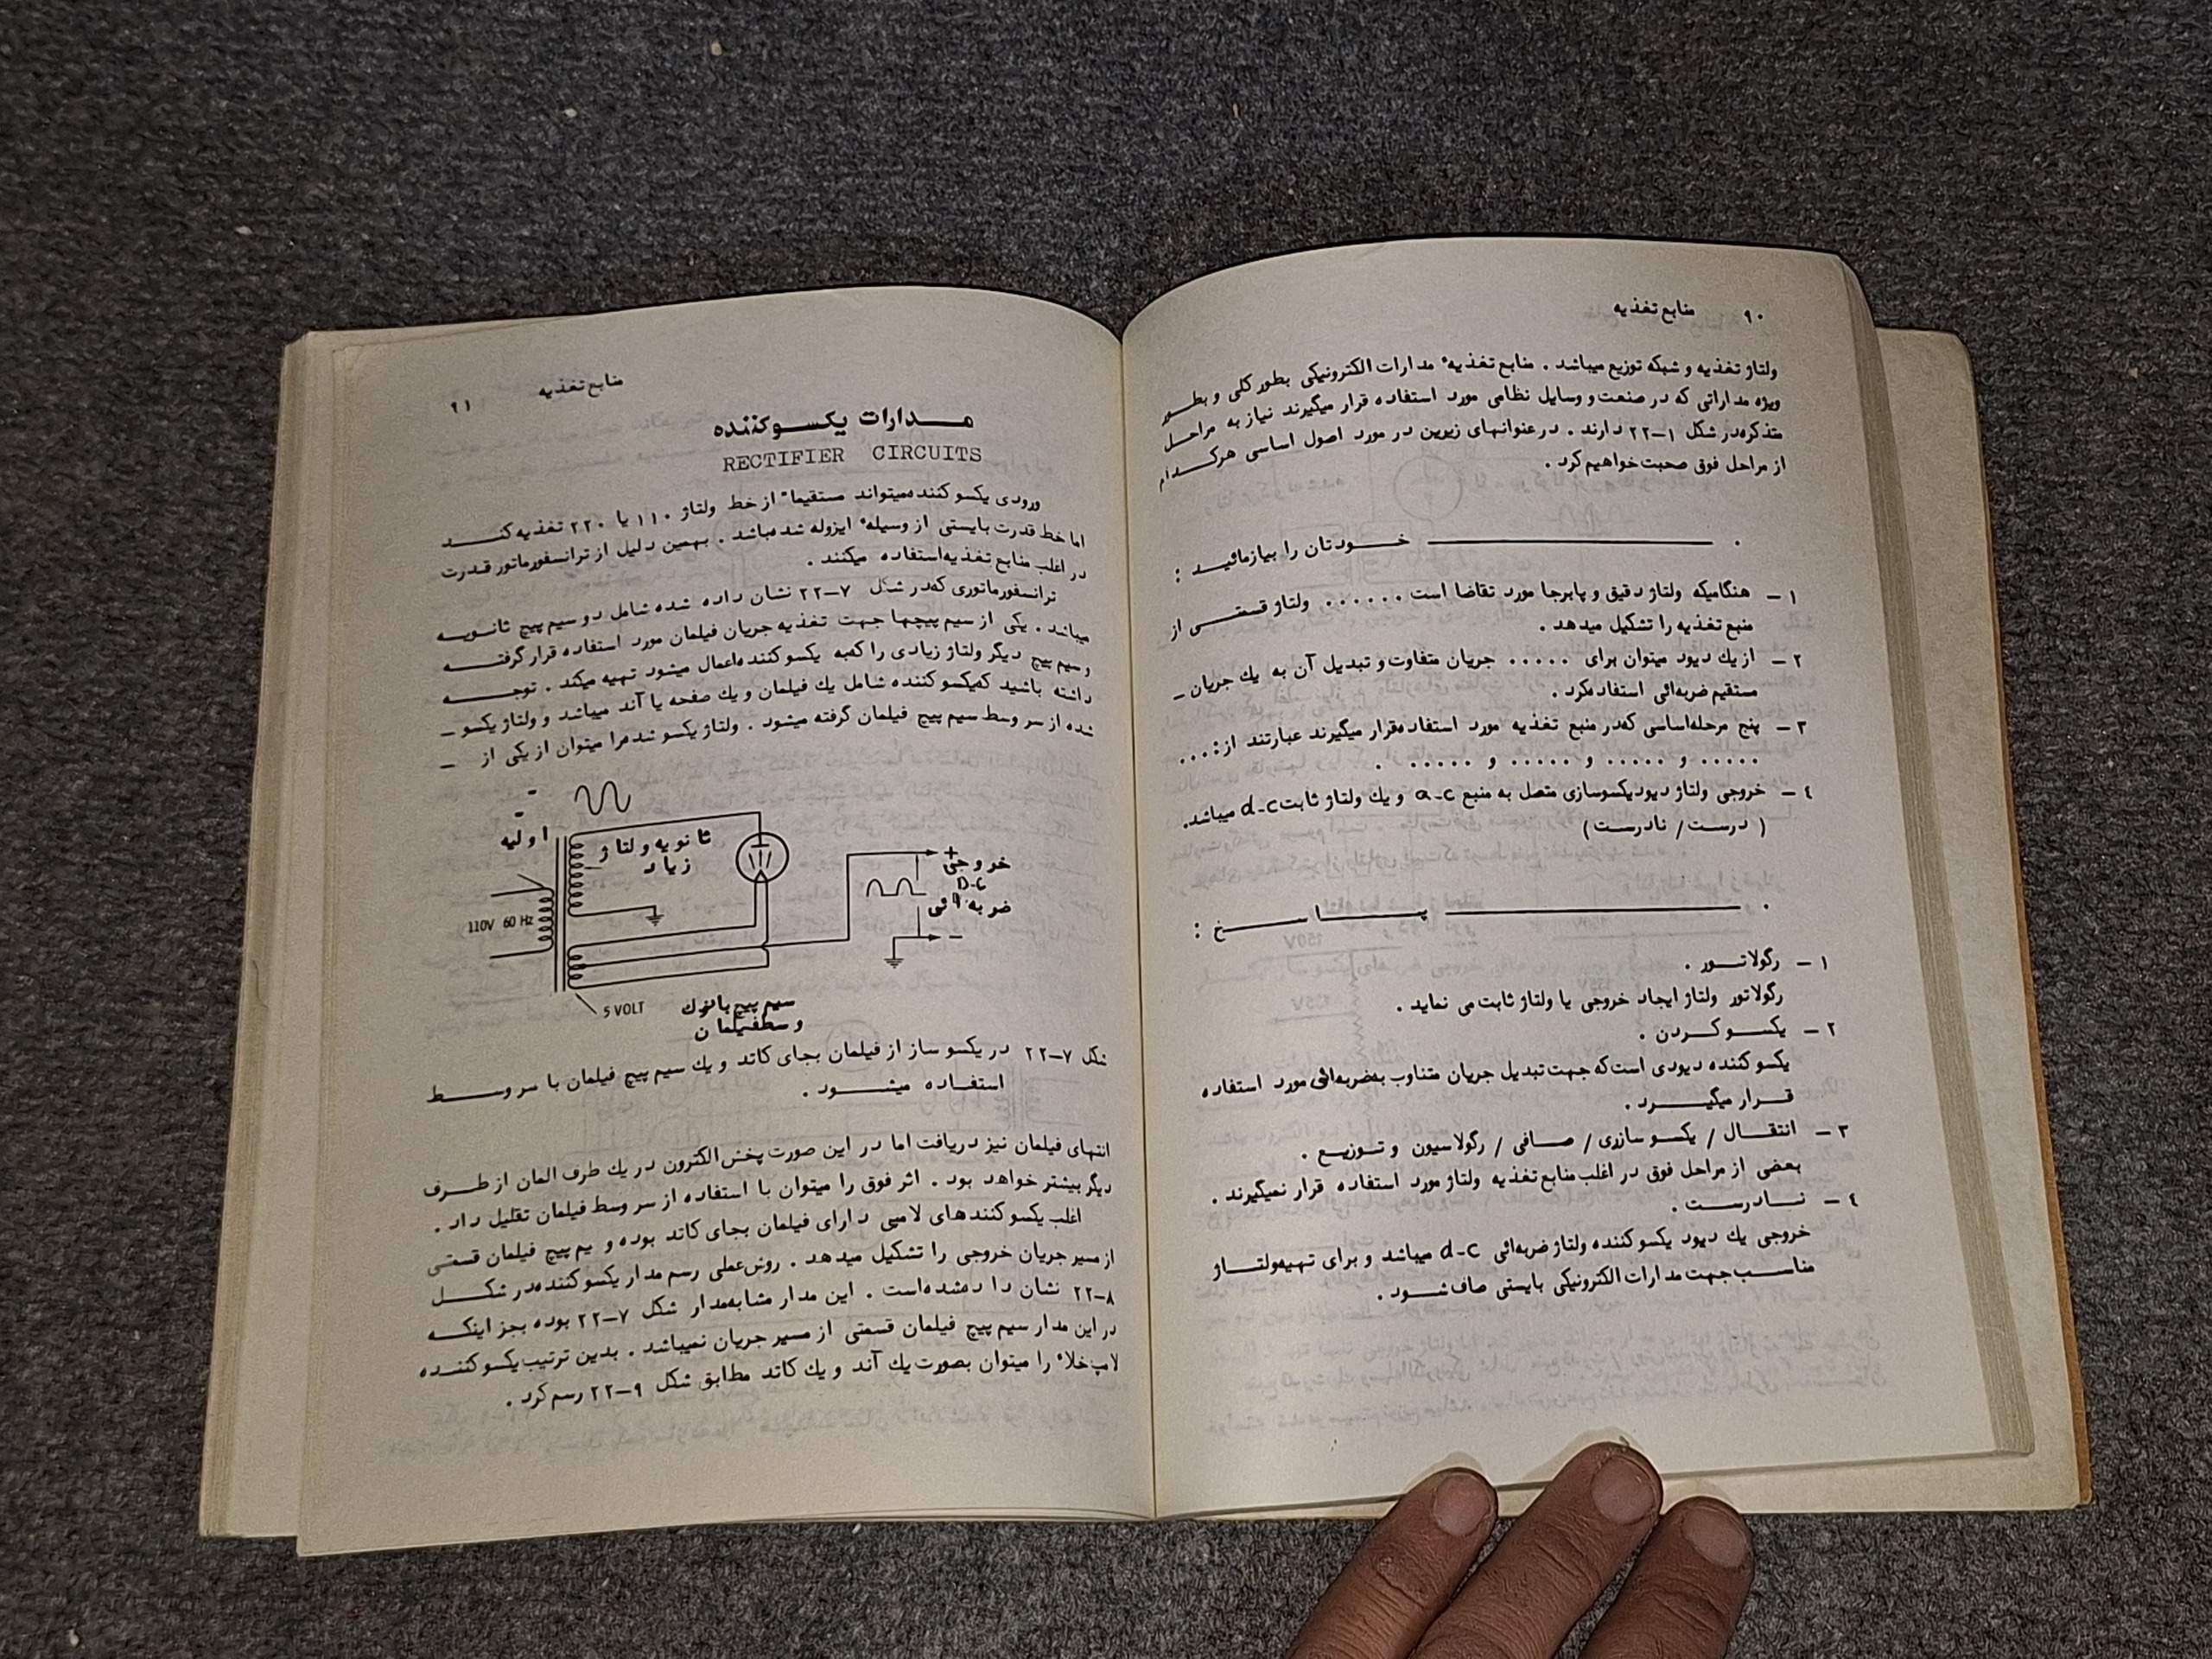 ۹۰ منابع تغذیه
ولتاژ تغذیه و شبکه توزیع میباشد . منابع تغذیهٔ مدارات الکترونیکی بطور کلی و بطور
ویژه مداراتی که در صنعت و وسایل نظامی مورد استفاده قرار میگیرند نیاز به مراحل
متذکره در شکل ۱–۲۲ دارند . در عنوانهای زیرین در مورد اصول اساسی هر کدام
از مراحل فوق صحبت خواهیم کرد .
خودتان را بیازمائید :
۱ – هنگامیکه ولتاژ دقیق و پابرجا مورد تقاضا است . . . . . . ولتاژ قسمتی از
منبع تغذیه را تشکیل میدهد .
۲ – از یك دیود میتوان برای . . . . . جریان متفاوت و تبدیل آن به یك جریان –
مستقیم ضربه‌ائی استفاده کرد .
۳ – پنج مرحله اساسی که در منبع تغذیه مورد استفاده قرار میگیرند عبارتند از : . . . .
. . . . . و . . . . . و . . . . . و . . . . . .
٤ – خروجی ولتاژ دیود یکسوسازی متصل به منبع a-c و یك ولتاژ ثابت d-c میباشد.
( درست / نادرست )
پاسخ :
۱ – رگولاتور .
رگولاتور ولتاژ ایجاد خروجی یا ولتاژ ثابت می نماید .
۲ – یکسو کردن .
یکسو کننده دیودی است که جهت تبدیل جریان متناوب به ضربه‌ائی مورد استفاده
قرار میگیرد .
۳ – انتقال / یکسو سازری / صافی / رگولاسیون و توزیع .
بعضی از مراحل فوق در اغلب منابع تغذیه ولتاژ مورد استفاده قرار نمیگیرند .
٤ – نادرست .
خروجی یك دیود یکسو کننده ولتاژ ضربه‌ائی d-c میباشد و برای تهیه ولتاژ
مناسب جهت مدارات الکترونیکی بایستی صاف شود .
منابع تغذیه ۹۱
مدارات یکسو کننده
RECTIFIER CIRCUITS
ورودی یکسو کننده میتواند مستقیماً از خط ولتاژ ۱۱۰ یا ۲۲۰ تغذیه کند
اما خط قدرت بایستی از وسیلهٔ ایزوله شده باشد . بهمین دلیل از ترانسفورماتور قدرت
در اغلب منابع تغذیه استفاده میکنند .
ترانسفورماتوری که در شکل ۷–۲۲ نشان داده شده شامل دو سیم پیچ ثانویه
میباشد . یکی از سیم پیچها جهت تغذیه جریان فیلمان مورد استفاده قرار گرفته
و سیم پیچ دیگر ولتاژ زیادی را که به یکسو کننده اعمال میشود تهیه میکند . توجه
داشته باشید که یکسو کننده شامل یك فیلمان و یك صفحه یا آند میباشد و ولتاژ یکسو –
شده از سر وسط سیم پیچ فیلمان گرفته میشود . ولتاژ یکسو شده را میتوان از یکی از –
اولیه
ثانویه ولتاژ
زیاد
110V 60 Hz
+
خروجی
D-C
ضربه‌ائی
–
5 VOLT
سیم پیچ با نوك
وسط فیلمان
شکل ۷–۲۲ در یکسو ساز از فیلمان بجای کاتد و یك سیم پیچ فیلمان با سر وسط
استفاده میشود .
انتهای فیلمان نیز دریافت اما در این صورت پخش الکترون در یك طرف المان از طرف
دیگر بیشتر خواهد بود . اثر فوق را میتوان با استفاده از سر وسط فیلمان تقلیل داد .
اغلب یکسو کنند‌های لامپی دارای فیلمان بجای کاتد بوده و یم پیچ فیلمان قسمتی
از مسیر جریان خروجی را تشکیل میدهد . روش عملی رسم مدار یکسو کننده در شکل
۸–۲۲ نشان داده شده است . این مدار مشابه مدار شکل ۷–۲۲ بوده بجز اینکه
در این مدار سیم پیچ فیلمان قسمتی از مسیر جریان نمیباشد . بدین ترتیب یکسو کننده
لامپ خلاٴ را میتوان بصورت یك آند و یك کاتد مطابق شکل ۹–۲۲ رسم کرد .